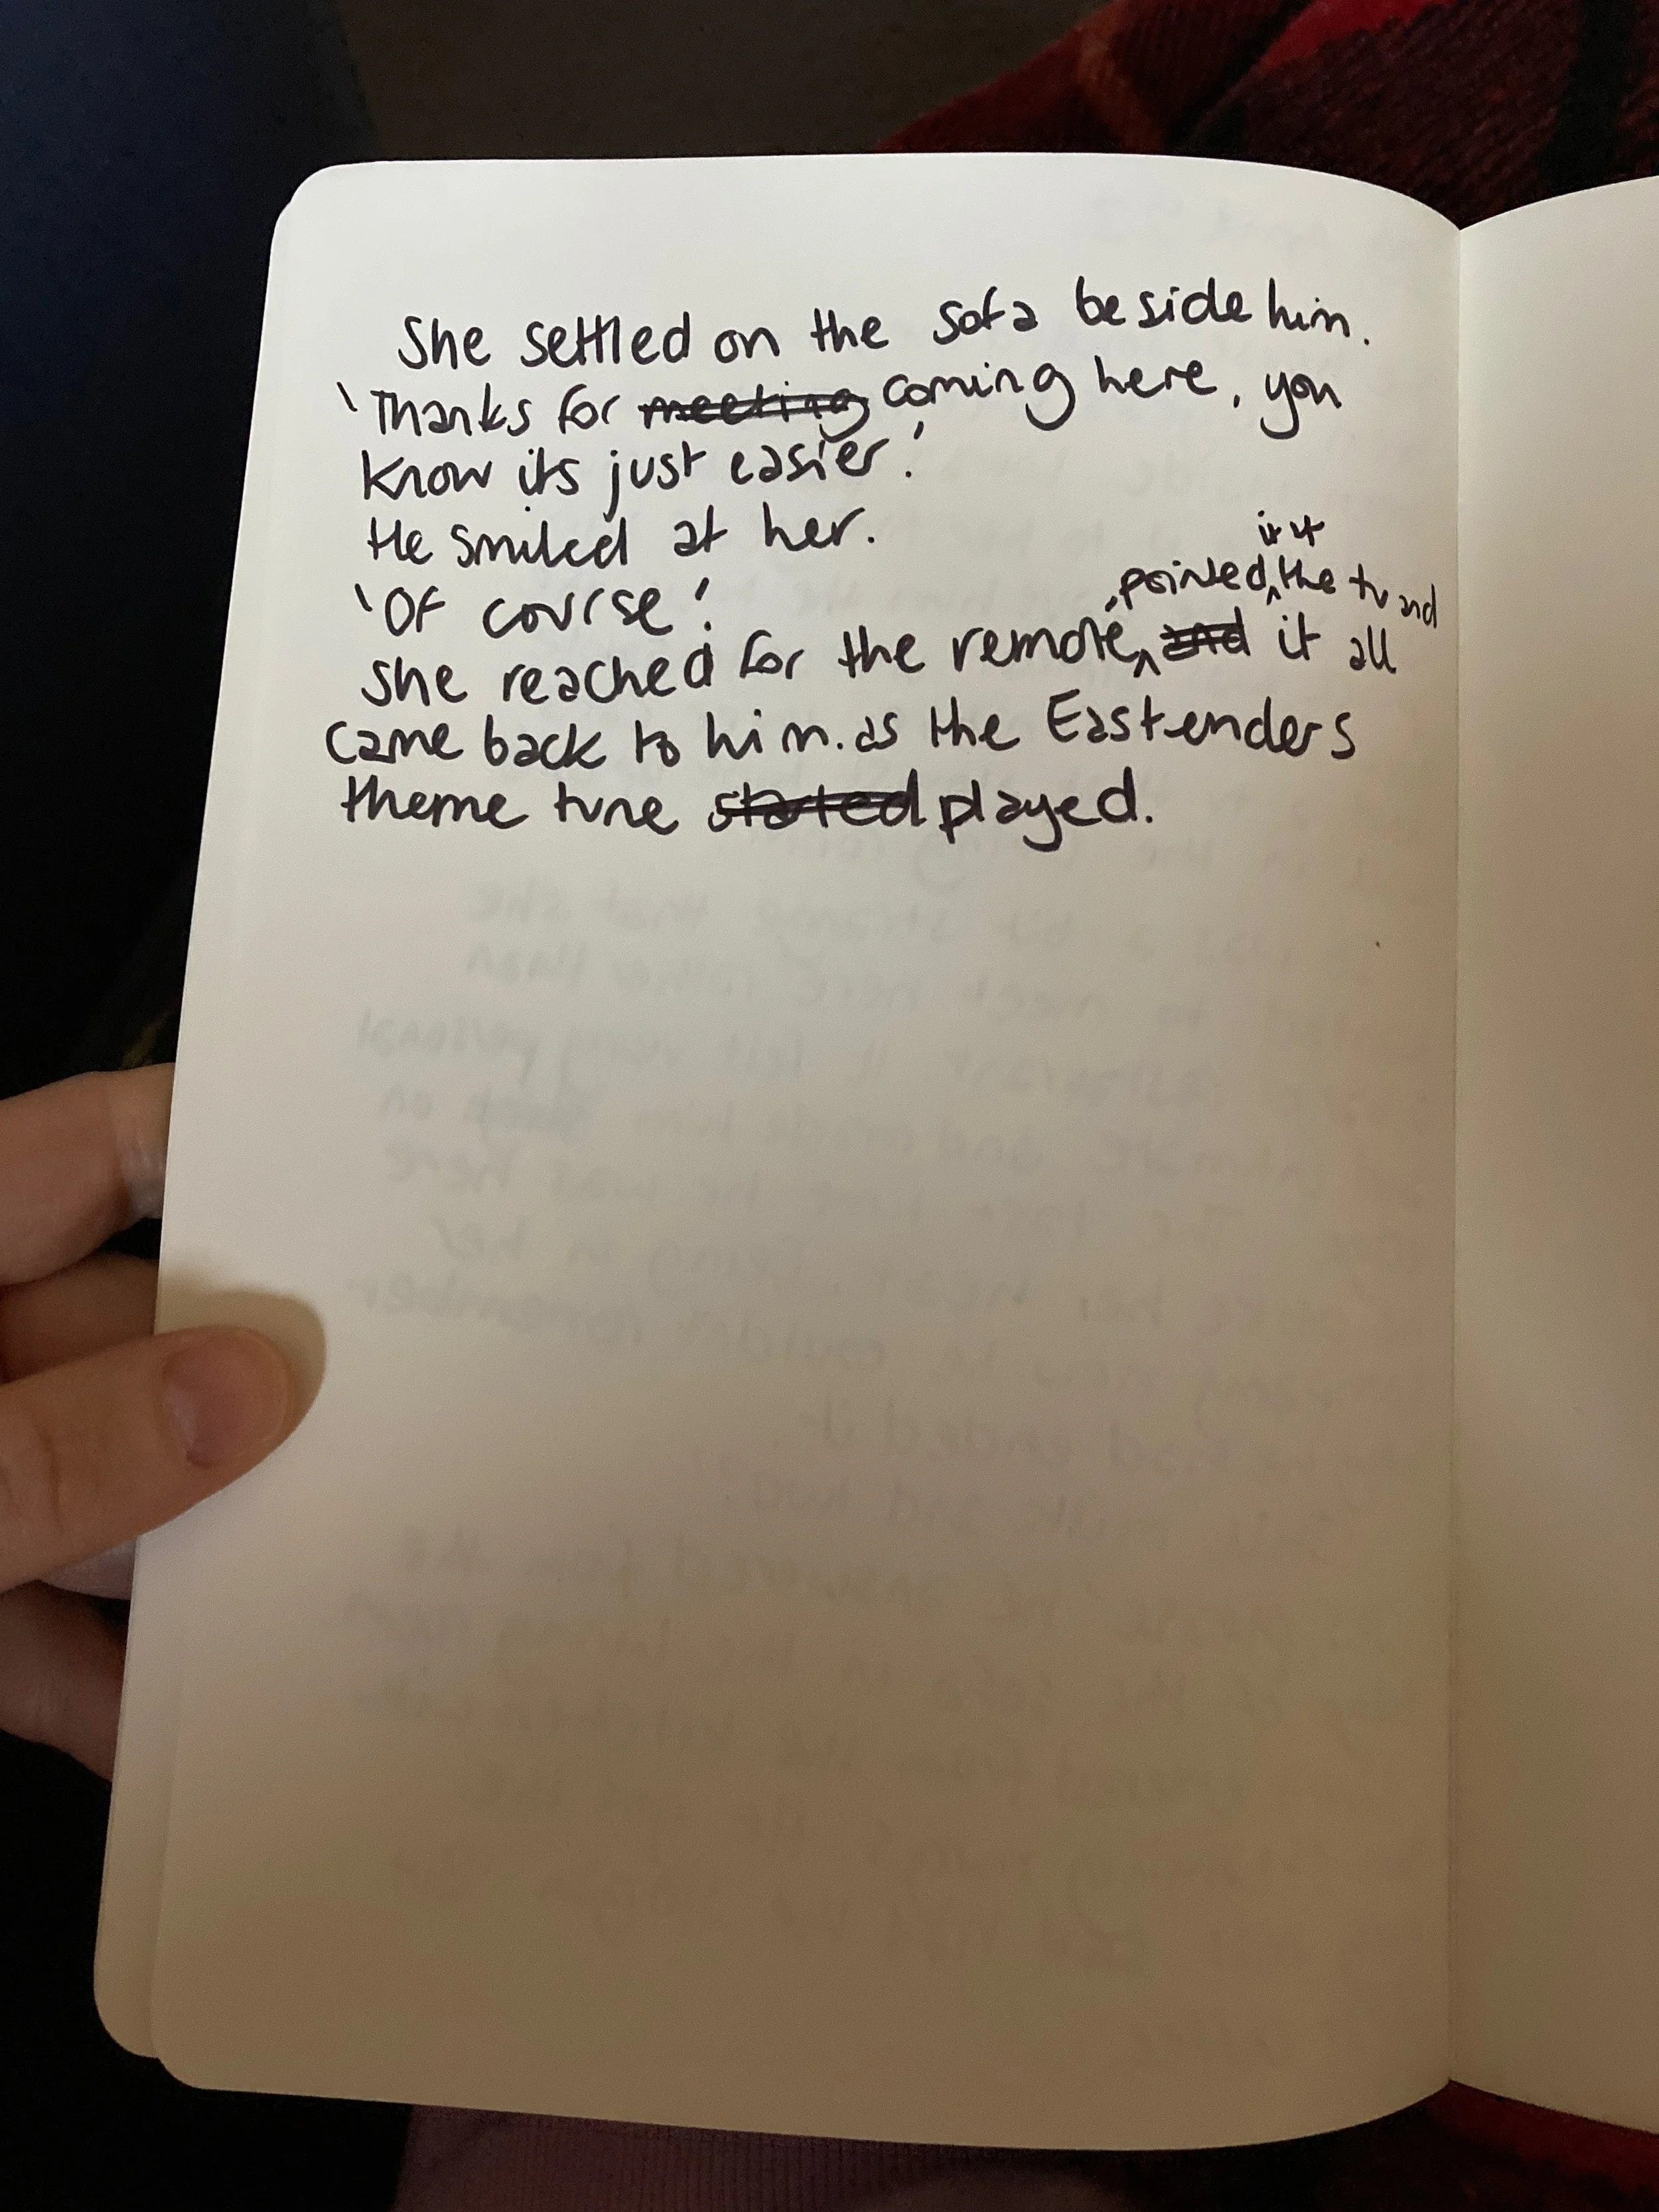 She settled on the sofa beside him.
'Thanks for meeting coming here, you
know its just easier.'
He smiled at her.
'Of course.'
it at
, pointed the tv and
She reached for the remote, and it all
came back to him. as the Eastenders
theme tune started played.